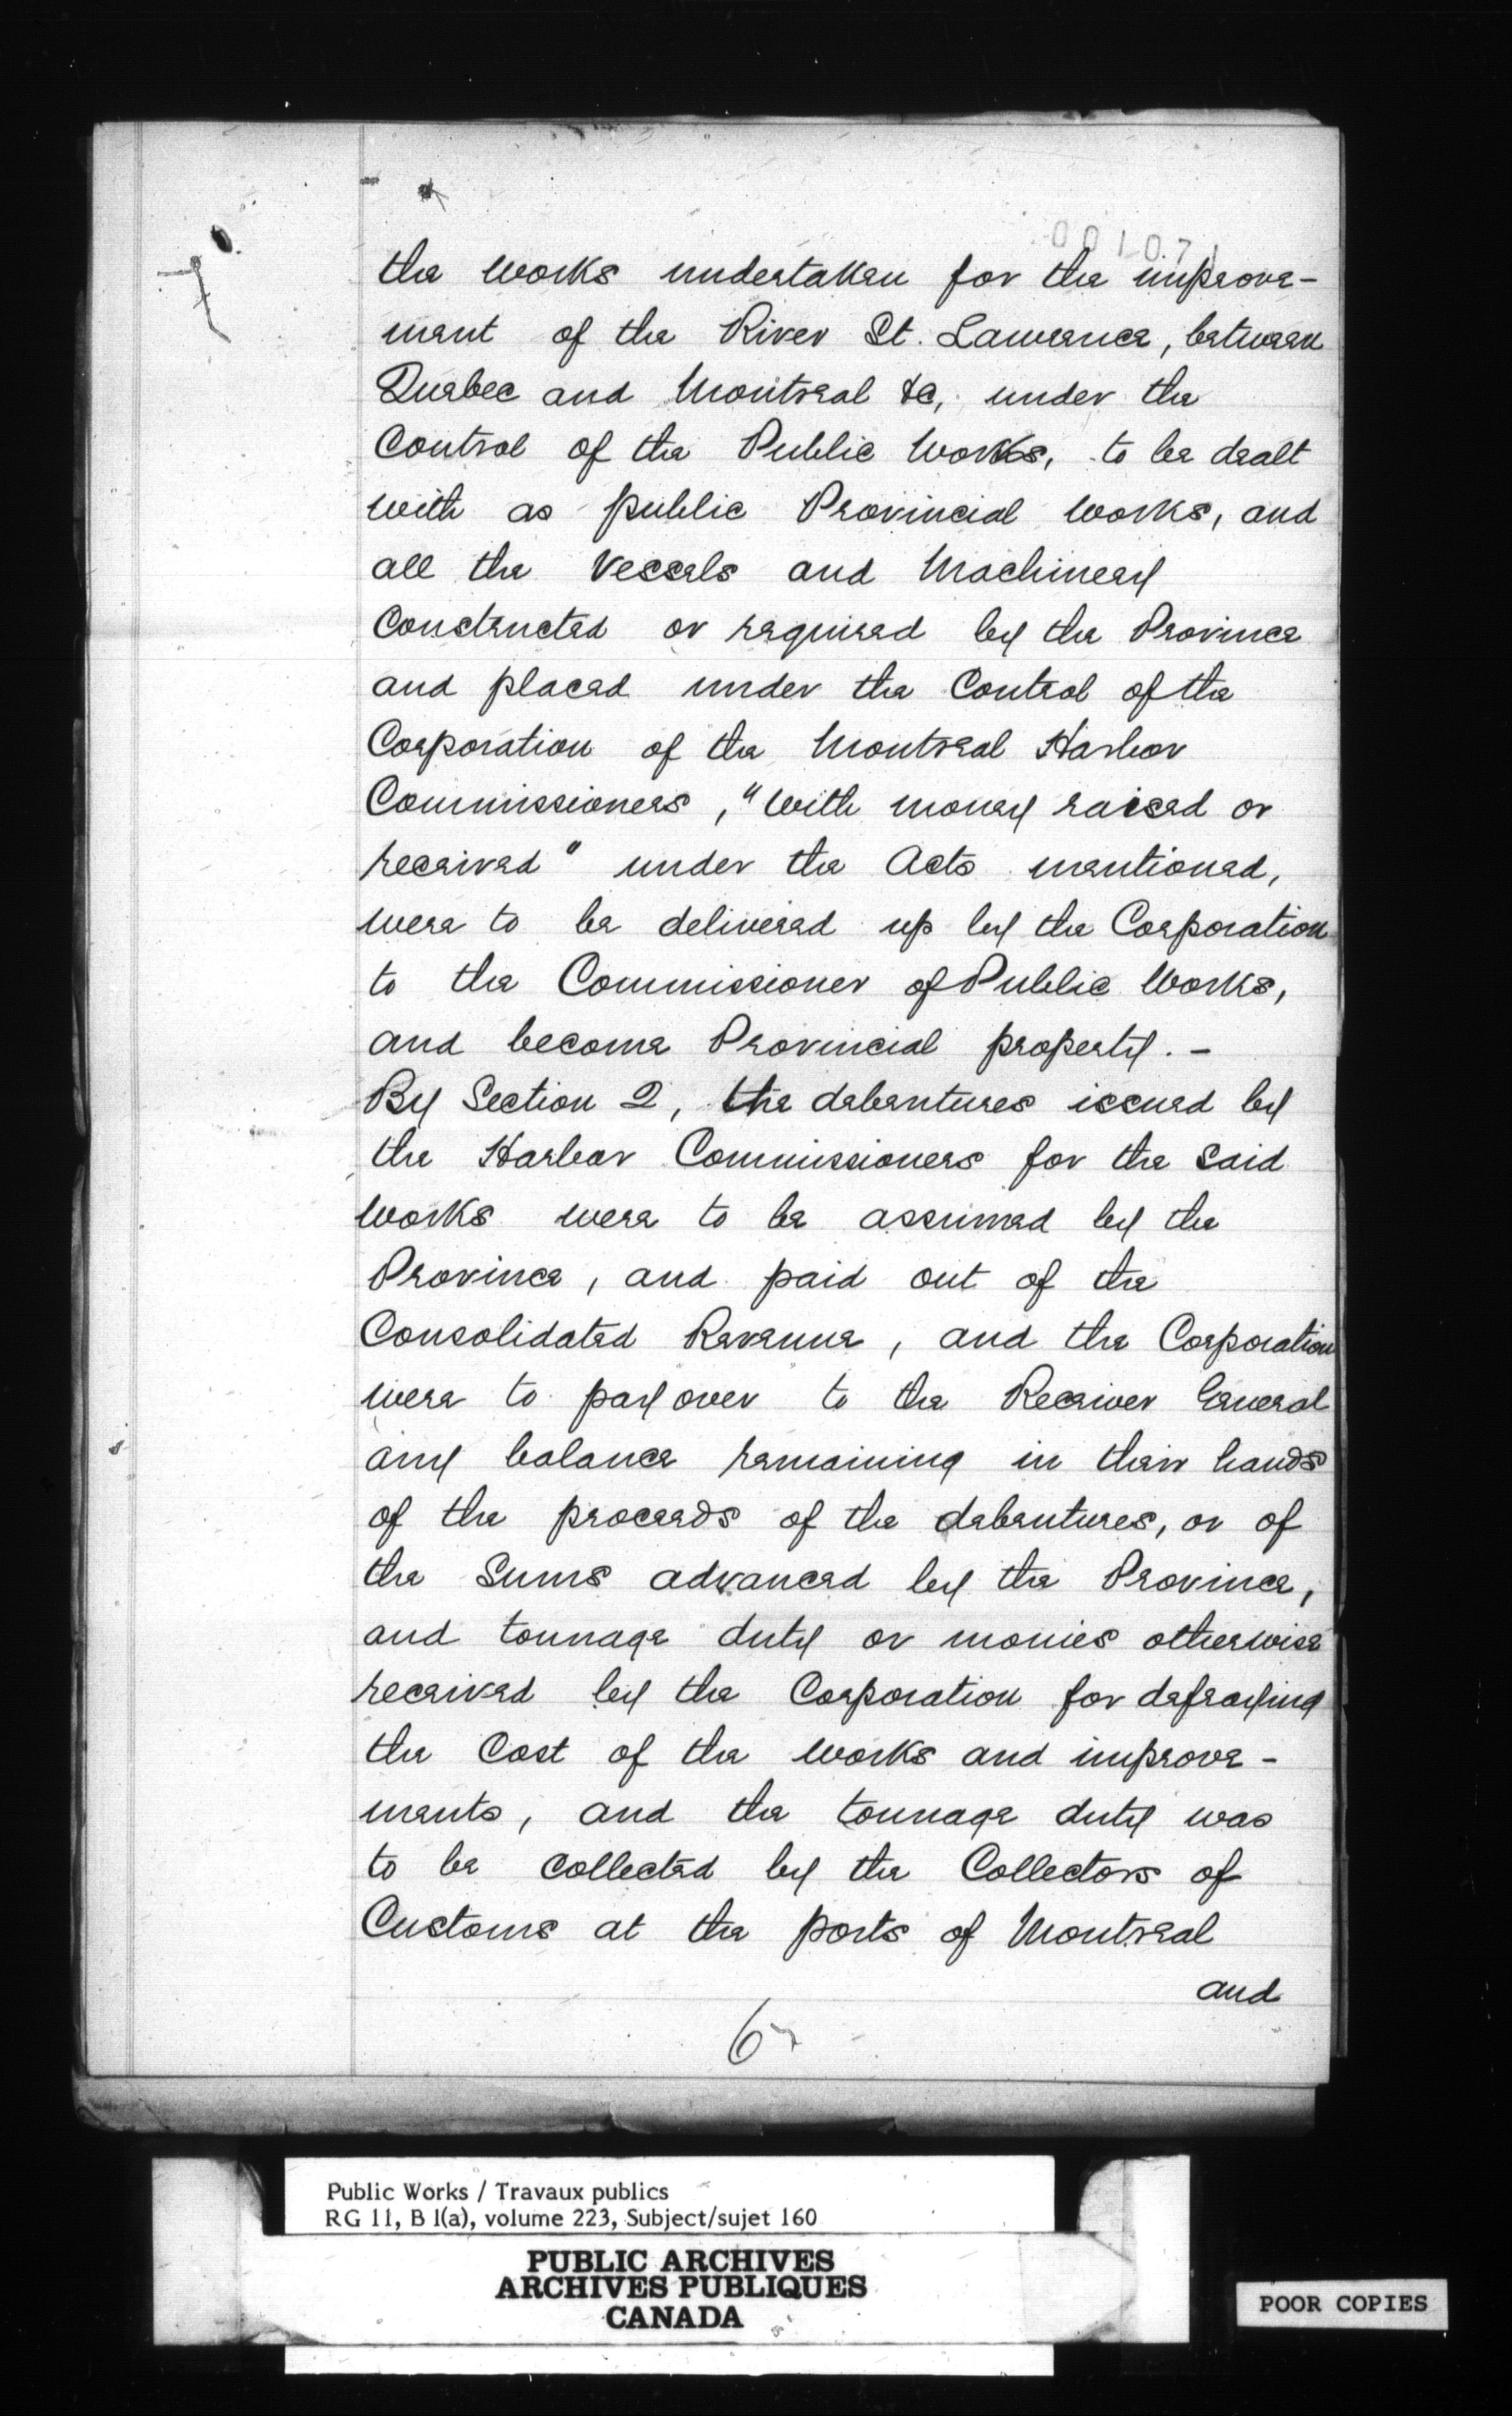 001071
the works undertaken for the improve-
ment of the River St. Lawrence, between
Quebec and Montreal &c, under the
Control of the Public Works, to be dealt
with as public Provincial works, and
all the Vessels and Machinery
Constructed or required by the Province
and placed under the Control of the
Corporation of the Montreal Harbor
Commissioners, "with money raised or
received" under the Acts mentioned,
were to be delivered up by the Corporation
to the Commissioner of Public Works,
and become Provincial property. -
By Section 2, the debentures issued by
the Harbor Commissioners for the said
works were to be assumed by the
Province, and paid out of the
Consolidated Revenue, and the Corporation
were to pay over to the Receiver General
any balance remaining in their hands
of the proceeds of the debentures, or of
the Sums advanced by the Province,
and tonnage duty or monies otherwise
received by the Corporation for defraying
the Cost of the works and improve-
ments, and the tonnage duty was
to be Collected by the Collectors of
Customs at the ports of Montreal
and
6
Public Works / Travaux publics
RG 11, B 1(a), volume 223, Subject/sujet 160
PUBLIC ARCHIVES
ARCHIVES PUBLIQUES
CANADA
POOR COPIES